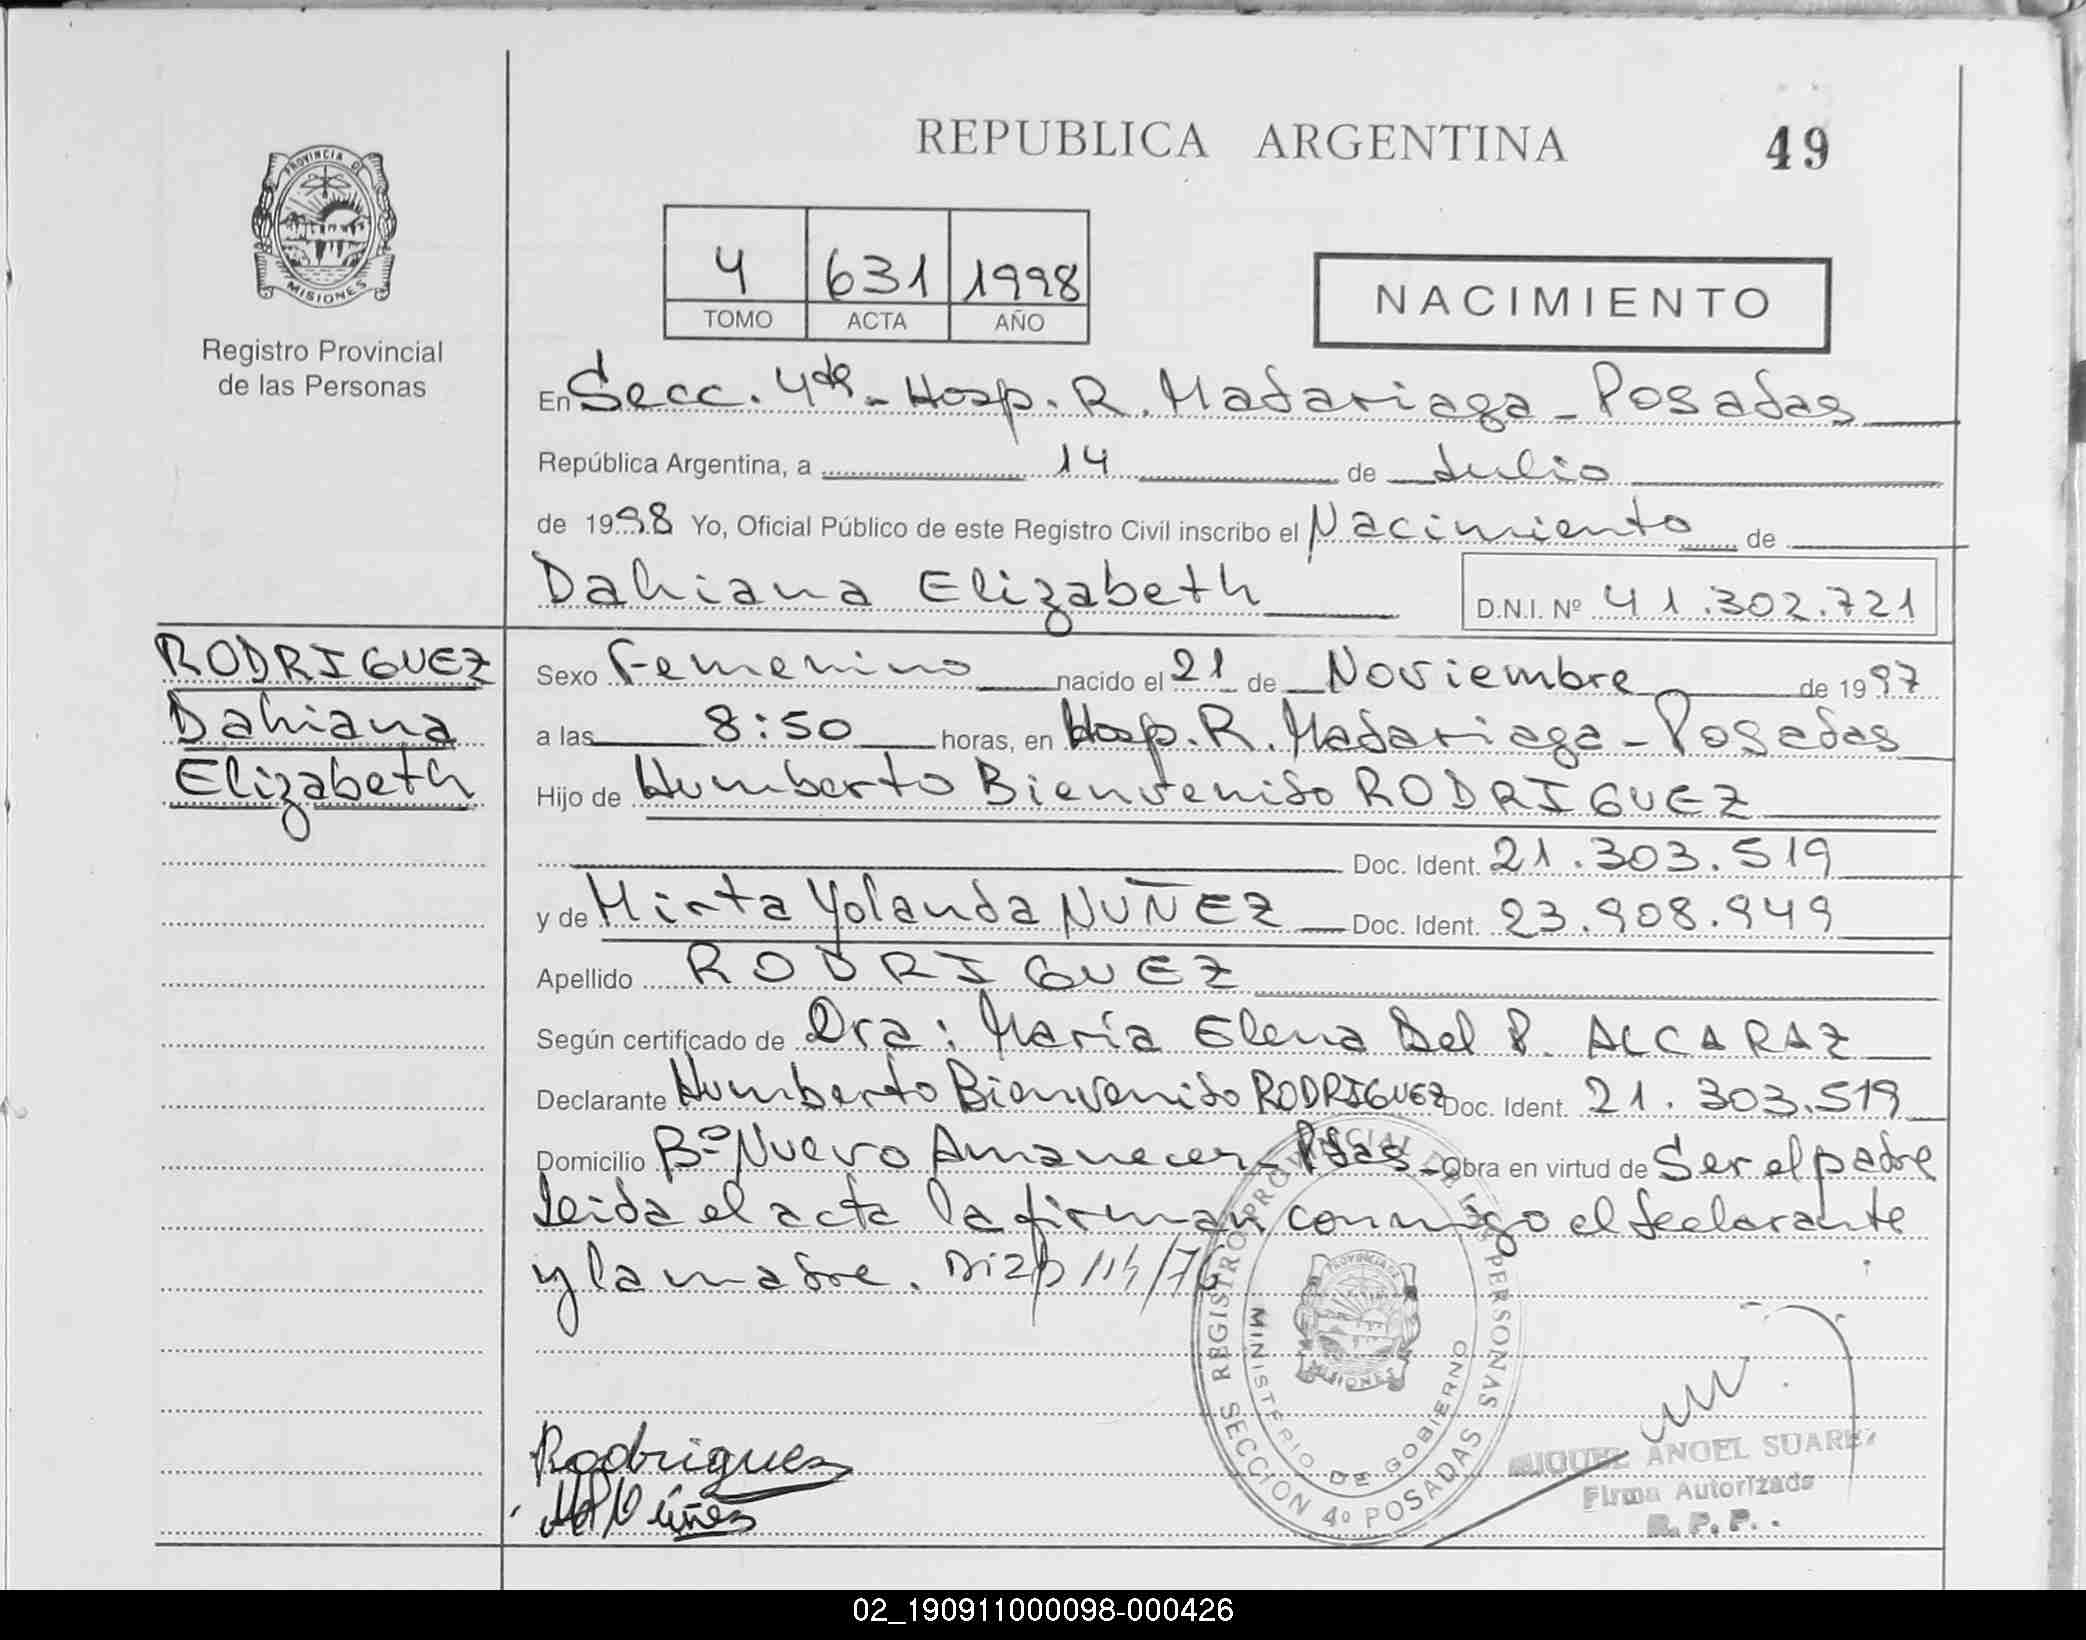 REPUBLICA ARGENTINA
49
PROVINCIA DE
MISIONES
Registro Provincial
de las Personas
4 631 1998
TOMO ACTA AÑO
NACIMIENTO
En Secc. 4ta - Hosp. R. Madariaga - Posadas
República Argentina, a 14 de Julio
de 1998 Yo, Oficial Público de este Registro Civil inscribo el Nacimiento de
Dahiana Elizabeth D.N.I. Nº 41.302.721
RODRIGUEZ
Dahiana
Elizabeth
Sexo Femenino nacido el 21 de Noviembre de 1997
a las 8:50 horas, en Hosp. R. Madariaga - Posadas
Hijo de Humberto Bienvenido RODRIGUEZ
Doc. Ident. 21.303.519
y de Mirta Yolanda NUÑEZ Doc. Ident. 23.908.949
Apellido RODRIGUEZ
Según certificado de Dra: María Elena Del P. ALCARAZ
Declarante Humberto Bienvenido RODRIGUEZ Doc. Ident. 21.303.519
Domicilio Bº Nuevo Amanecer - Pdas - Obra en virtud de Ser el padre
Leida el acta la firman conmigo el declarante
y la madre.
REGISTRO PROVINCIAL DE LAS PERSONAS
SECCION 4º POSADAS
MINISTERIO DE GOBIERNO
PROVINCIA DE
MISIONES
Rodriguez
Núñez
MIGUEL ANGEL SUAREZ
Firma Autorizada
R. P. P.
02_190911000098-000426